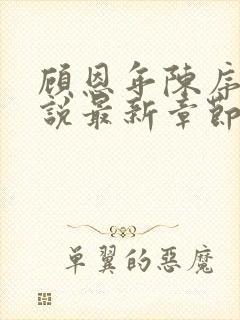 顾恩年陈序
說最新章節
单翼的惡魔